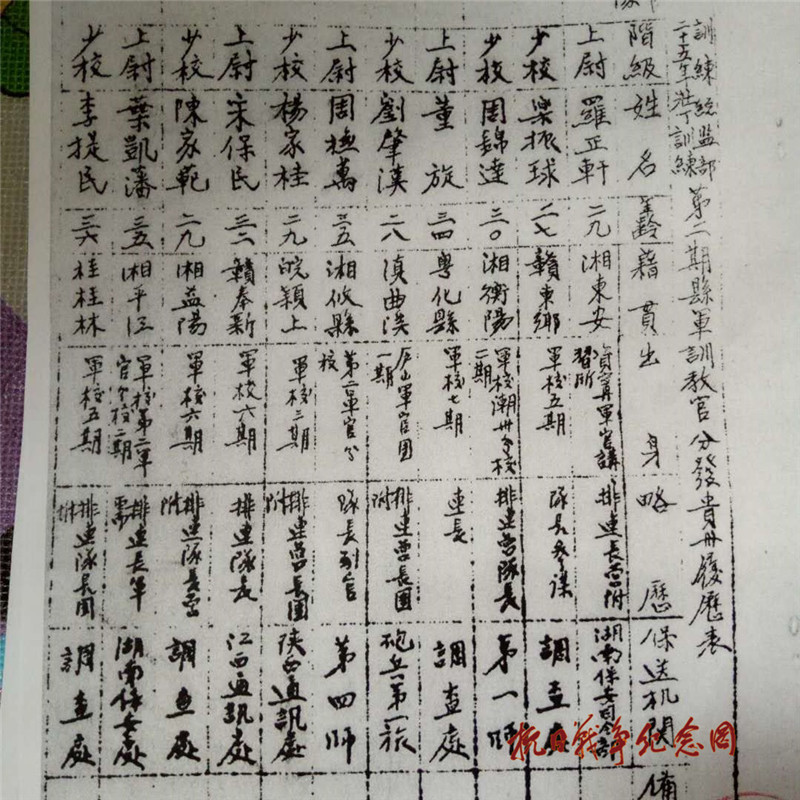 訓練總监部
二十五年壯丁訓練
第二期縣軍訓教官分發貴州履歷表
階級 姓名 年齡 籍貫 出身 略歷 保送机関 備
上尉 羅正軒 二九 湘東安 習所 排連長营附 湖南保安司令部
少校 樂振球 二七 贛東鄉 軍校五期 隊長参謀 調查處
少校 周錦達 三〇 湘衡陽 軍校潮州分校二期 排連营隊長 第一師
上尉 董旋 三四 粵化縣 軍校七期 連長 調查處
少校 劉肇漢 二八 滇曲溪 庐山軍官团一期 排連营長團附 砲兵第一旅
上尉 周 萬 三五 湘攸縣 第二軍官分校 隊長副官 第四師
少校 楊家桂 二九 皖潁上 軍校三期 排連营長團附 陝西通訊處
上尉 宋保民 三二 贛奉新 軍校六期 排連隊長 江西通訊處
少校 陳家範 二九 湘益陽 軍校六期 排連隊長营附 調查處
上尉 葉凱藩 三五 湘平江 軍校第二軍官分校二期 排連長軍需 湖南保安處
少校 李提民 三六 桂桂林 軍校五期 排連隊長團附 調查處
抗日戰争纪念网